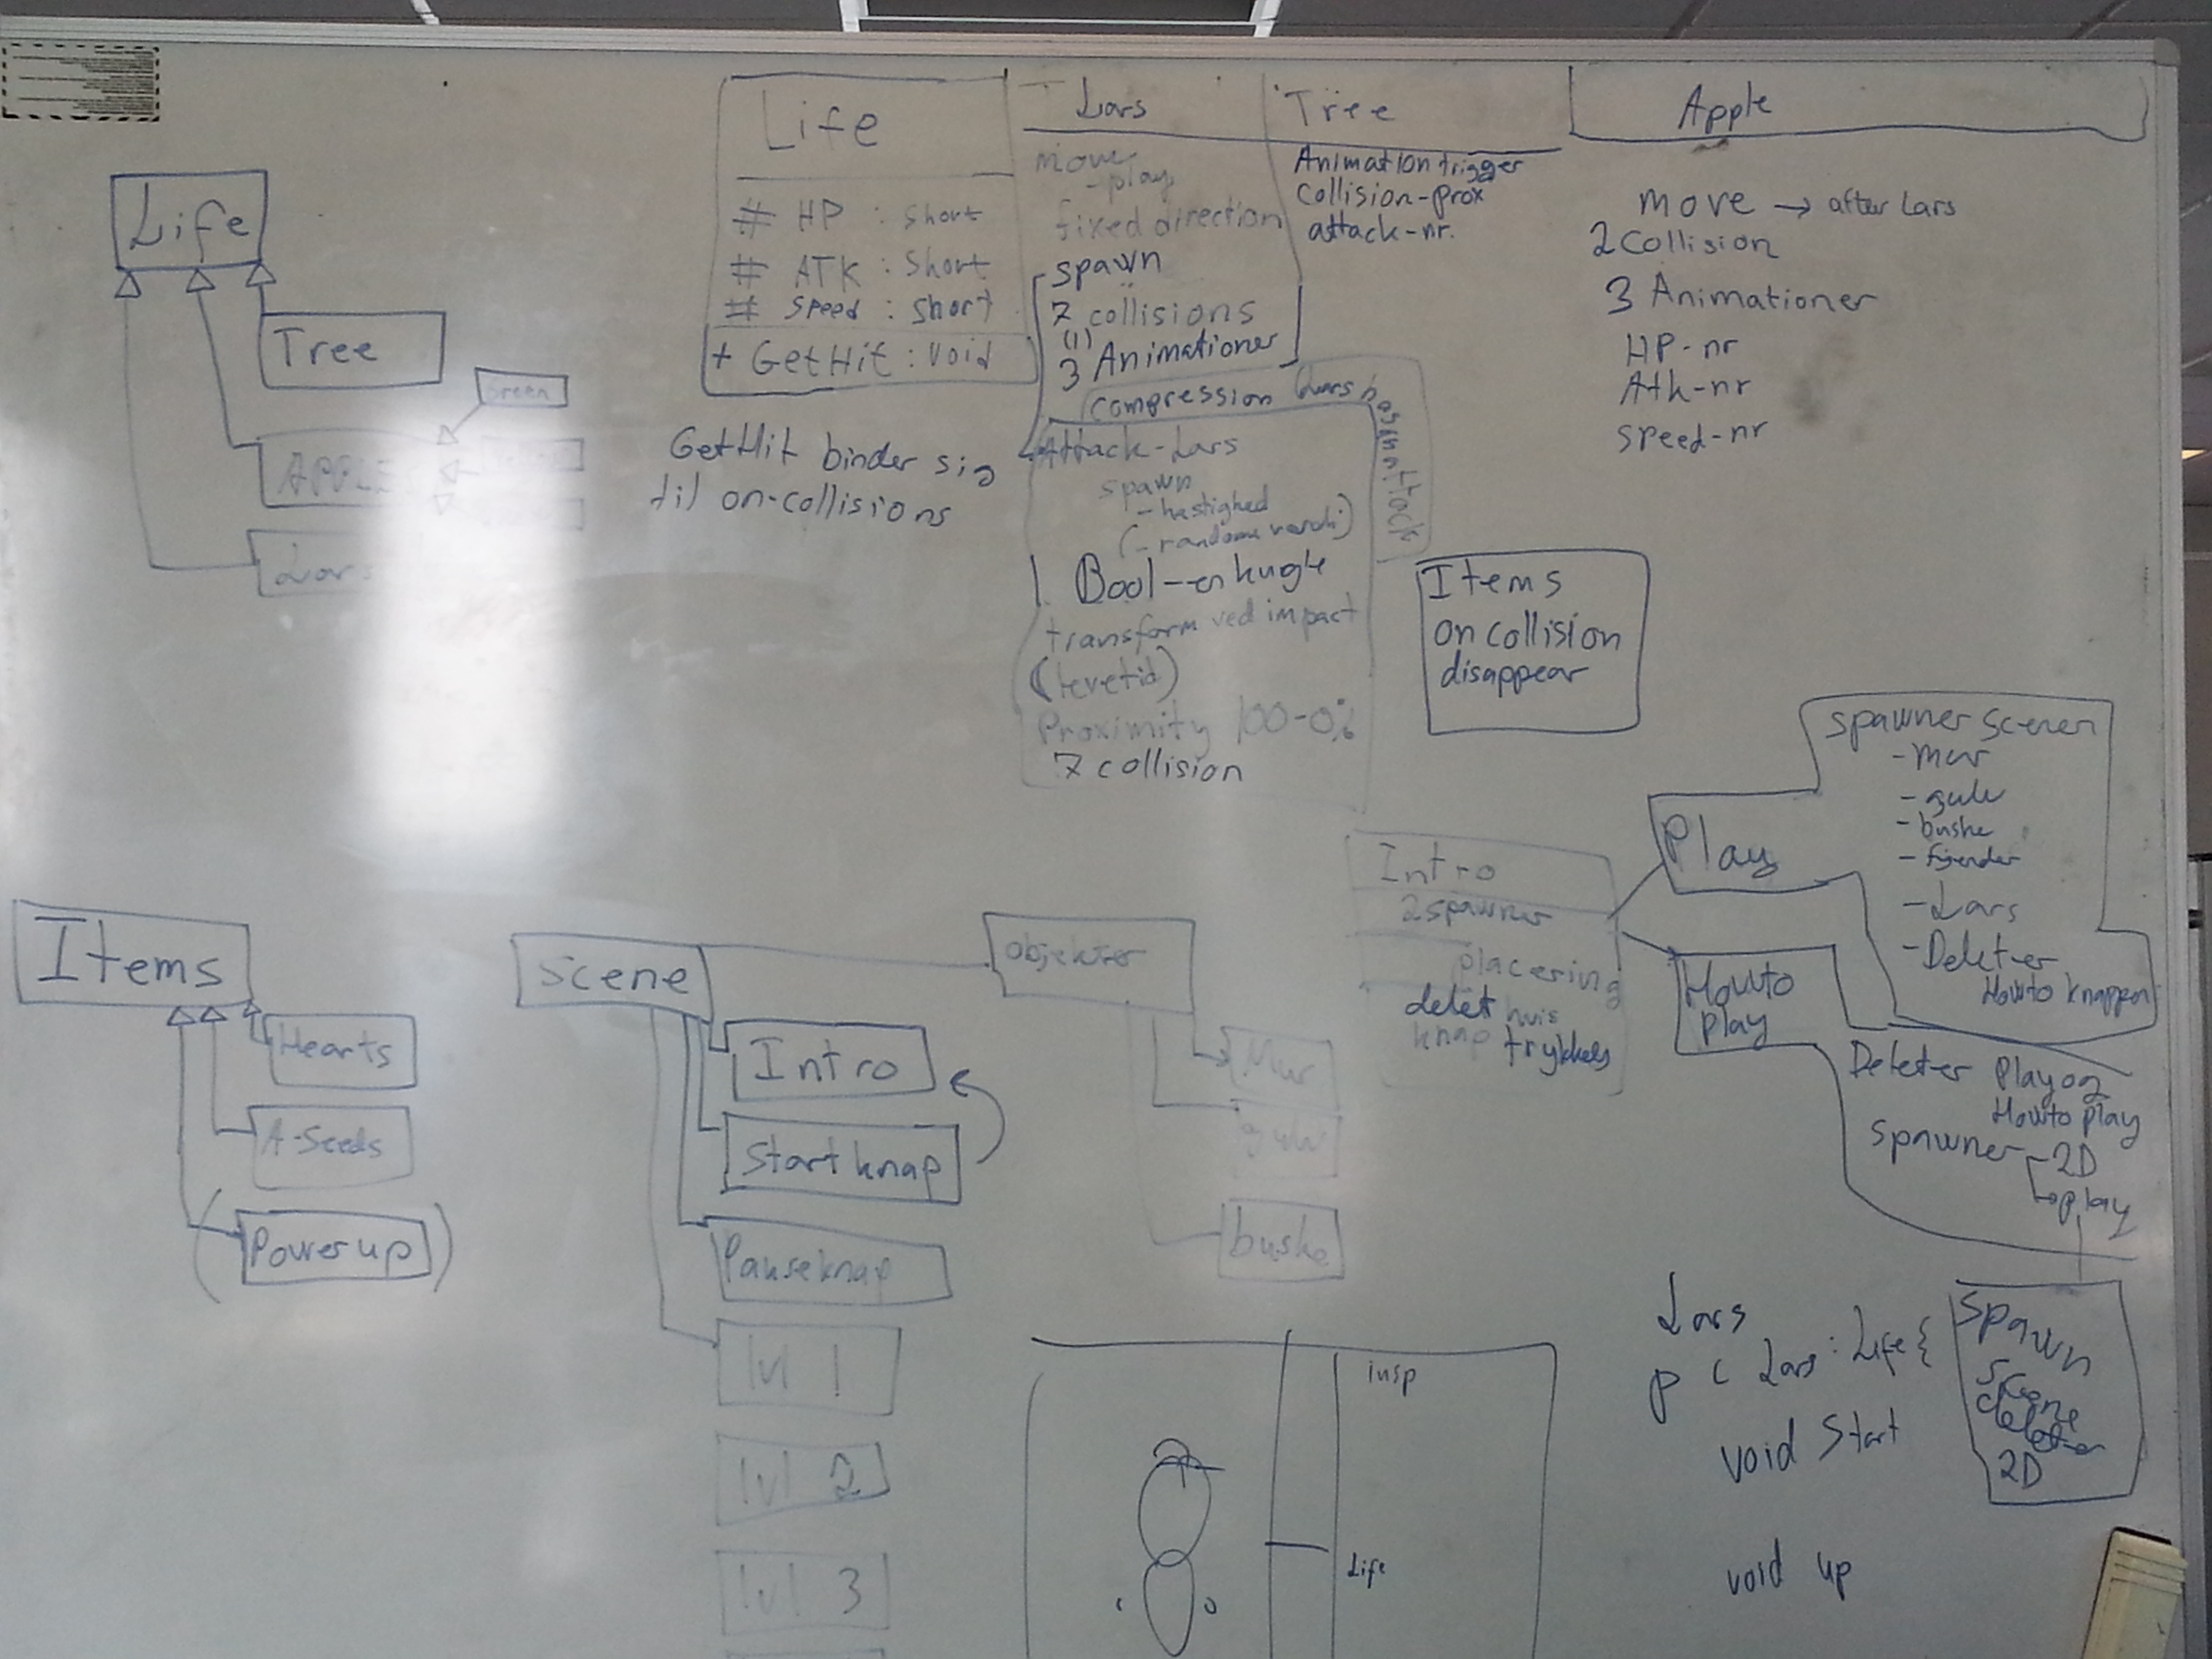 Life
Tree
Green
APPLE
Lars
Life
# HP : short
# ATK : short
# speed : short
+ GetHit : void
GetHit binder sig
til on-collisions
Lars
move
-play
fixed direction
spawn
7 collisions
(1)
3 Animationer
compression
Lars has
attack
Attack-Lars
spawn
- hastighed
Bool-er kugle
transform ved impact
(levetid)
Proximity 100-0%
7 collision
Tree
Animation trigger
collision-prox
attack-nr.
Apple
move → after Lars
2 Collision
3 Animationer
HP-nr
Atk-nr
speed-nr
Items
on collision
disappear
spawner scener
- mur
- gulv
- buske
- fjender
- Lars
- Deleter
Howto knappen
Play
Intro
2 spawner
placering
delet hvis
knap trykkes
Howto
play
Deleter Play og
Howto play
spawner
2D
play
Items
Hearts
A-Seeds
(Power up)
Scene
Intro
Start knap
Pauseknap
lvl 1
lvl 2
lvl 3
objekter
Mur
gulv
buske
insp
Life
Lars
p c Lars : Life {
void Start
void up
Spawn
Scene
deleter
2D